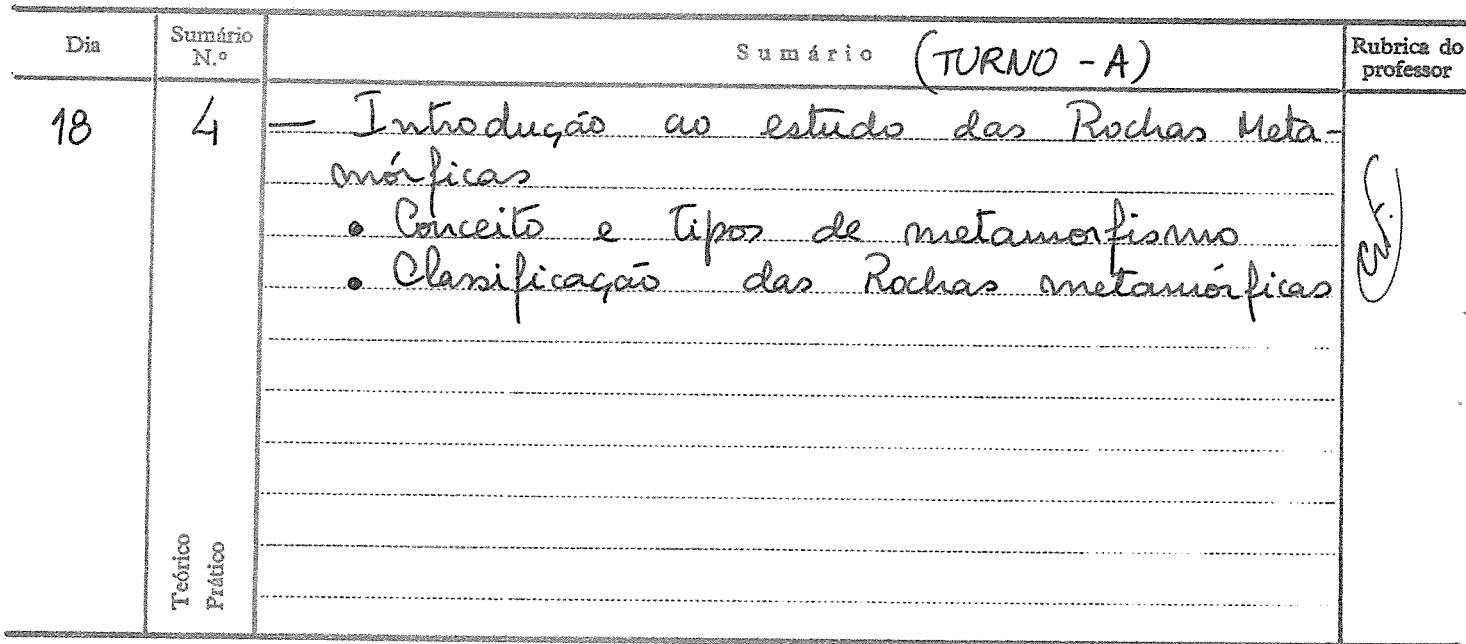 Dia Sumário N.º Sumário (TURNO - A) Rubrica do professor
18 4 — Introdução ao estudo das Rochas Meta-
mórficas
• Conceito e Tipos de metamorfismo
• Classificação das Rochas metamórficas
Teórico
Prático